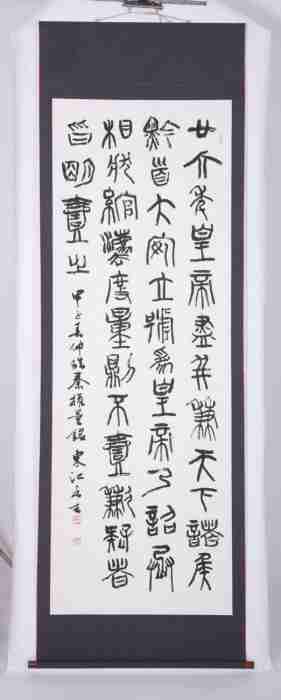 廿六年皇帝盡并兼天下諸侯
黔首大安立號為皇帝乃詔丞
相狀綰灋度量則不壹歉疑者
皆明壹之
春仲臨秦權量銘 東江